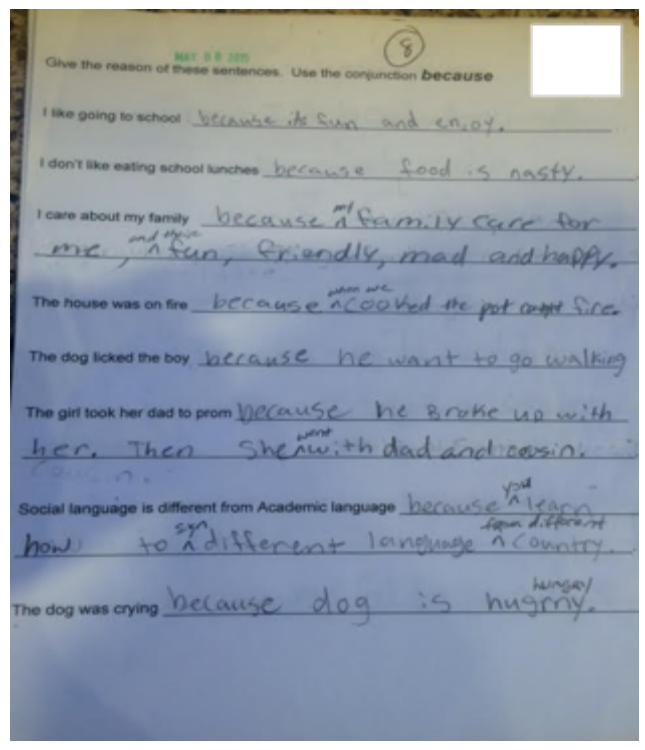 8
MAY 08 2015
Give the reason of these sentences. Use the conjunction because
I like going to school because its fun and enjoy.
I don't like eating school lunches because food is nasty.
I care about my family because ^my family care for
me, ^and they're fun, friendly, mad and happy.
The house was on fire because ^when we cooked the pot caught fire.
The dog licked the boy because he want to go walking
The girl took her dad to prom because he Broke up with
her. Then She ^went with dad and cousin.
Cousin.
Social language is different from Academic language because ^you learn
how to ^sign different language ^from different country.
The dog was crying because dog is hugrny. hungry